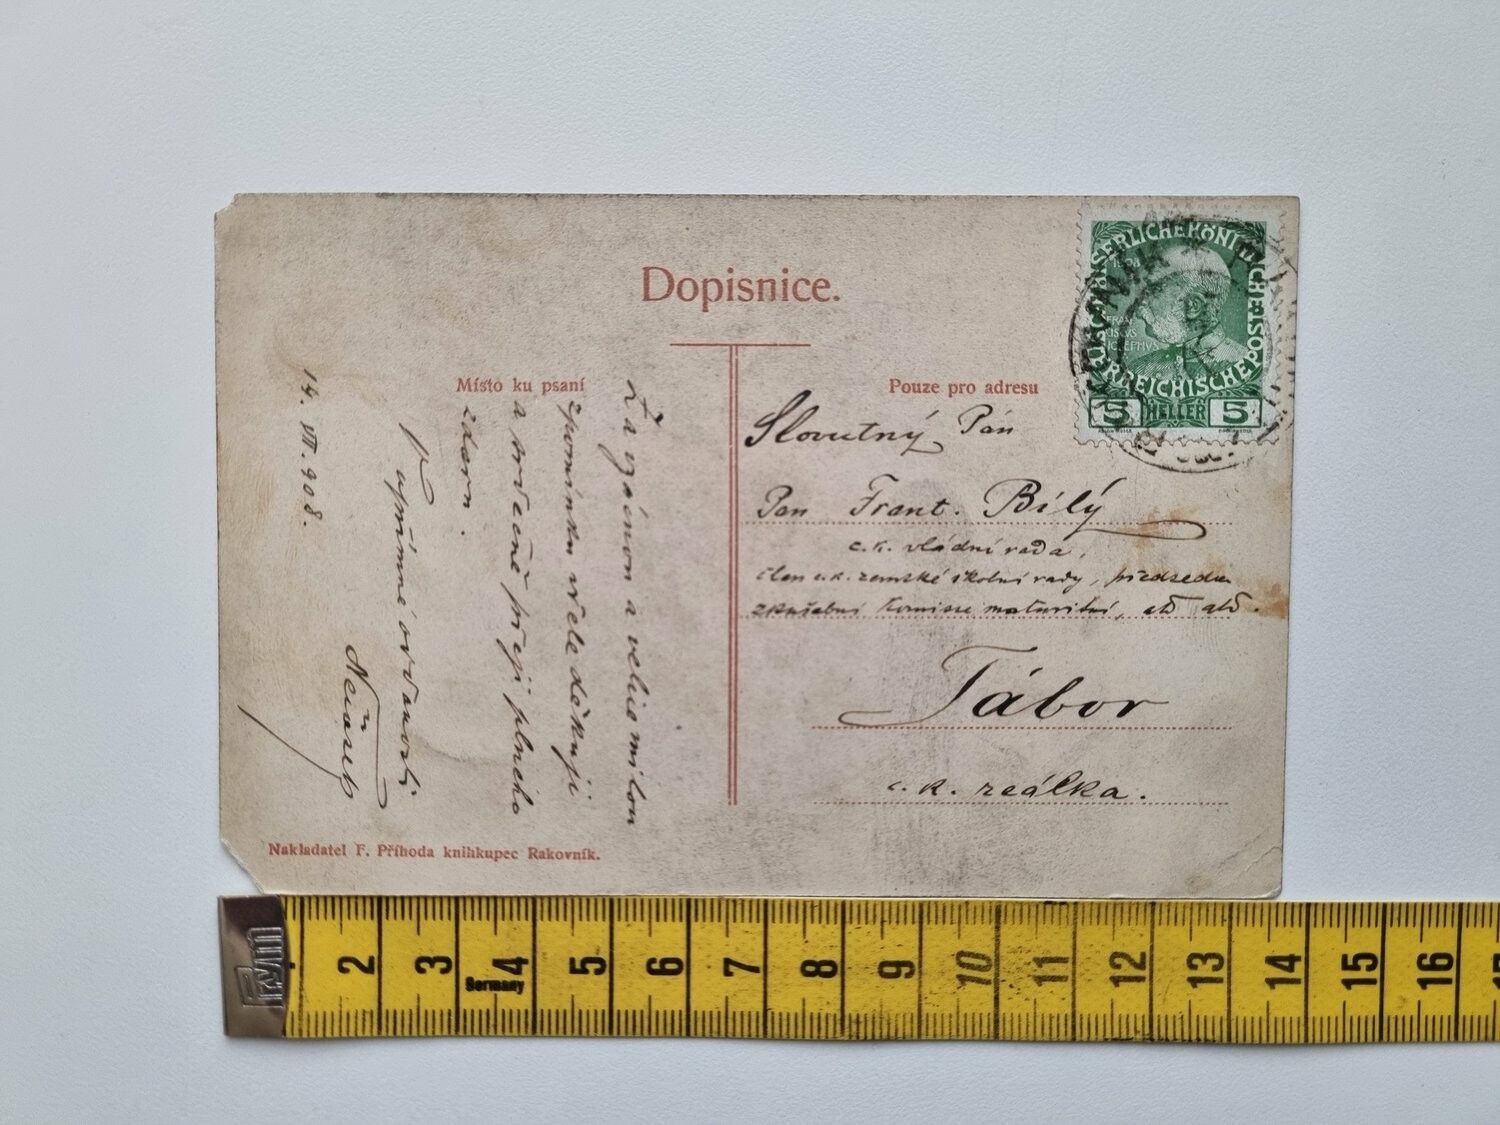 Dopisnice.
Místo ku psaní
Pouze pro adresu
KAISERLICHE KÖNIGLICHE
ÖSTERREICHISCHE POST
FRAN
CISCVS
IOSEPHVS
5 HELLER 5
Slovutný Pán
Pan Frant. Bílý
c.k. vládní rada,
člen c.k. zemské školní rady, předseda
zkušební komisse maturitní, atd atd.
Tábor
c.k. reálka.
Za vzácnou a velice milou
zpomínku vřele děkuji
a srdečně přeji plného
zdaru.
V upřímné oddanosti
Nečásek
14. VII. 908.
Nakladatel F. Příhoda knihkupec Rakovník.
Prym
2 3 4 5 6 7 8 9 10 11 12 13 14 15 16
Germany